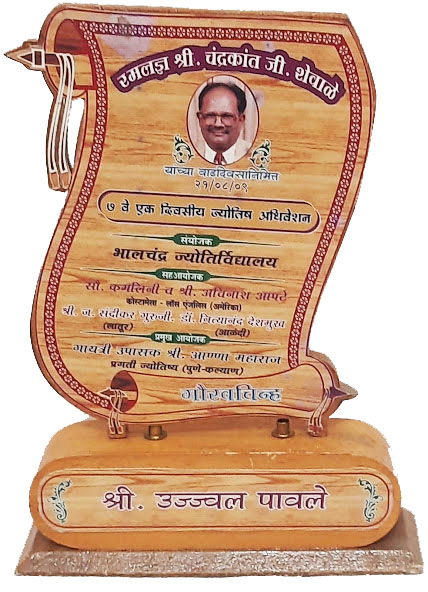 रमलज्ञ श्री. चंद्रकांत जी. शेवाळे
याच्या वाढदिवसानिमित्त
२१/०८/०९
७ वे एक दिवसीय ज्योतिष अधिवेशन
संयोजक
भालचंद्र ज्योतिर्विद्यालय
सहआयोजक
सौ. कमलिनी व श्री. अविनाश आपटे
कोस्टामेसा - लॉस एंजलिस (अमेरिका)
श्री. ज. सदीकर गुरुजी. डॉ. नित्यानंद देशमुख
(लातूर) (आळंदी)
प्रमुख आयोजक
गायत्री उपासक श्री. आण्णा महाराज
प्रगती ज्योतिष्य (पुणे-कल्याण)
गौरवचिन्ह
श्री. उज्ज्वल पावले